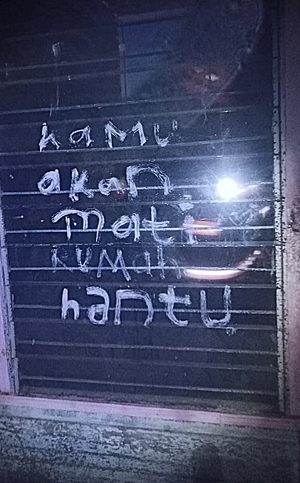 kamu
akan
mati
RUMah
hantu